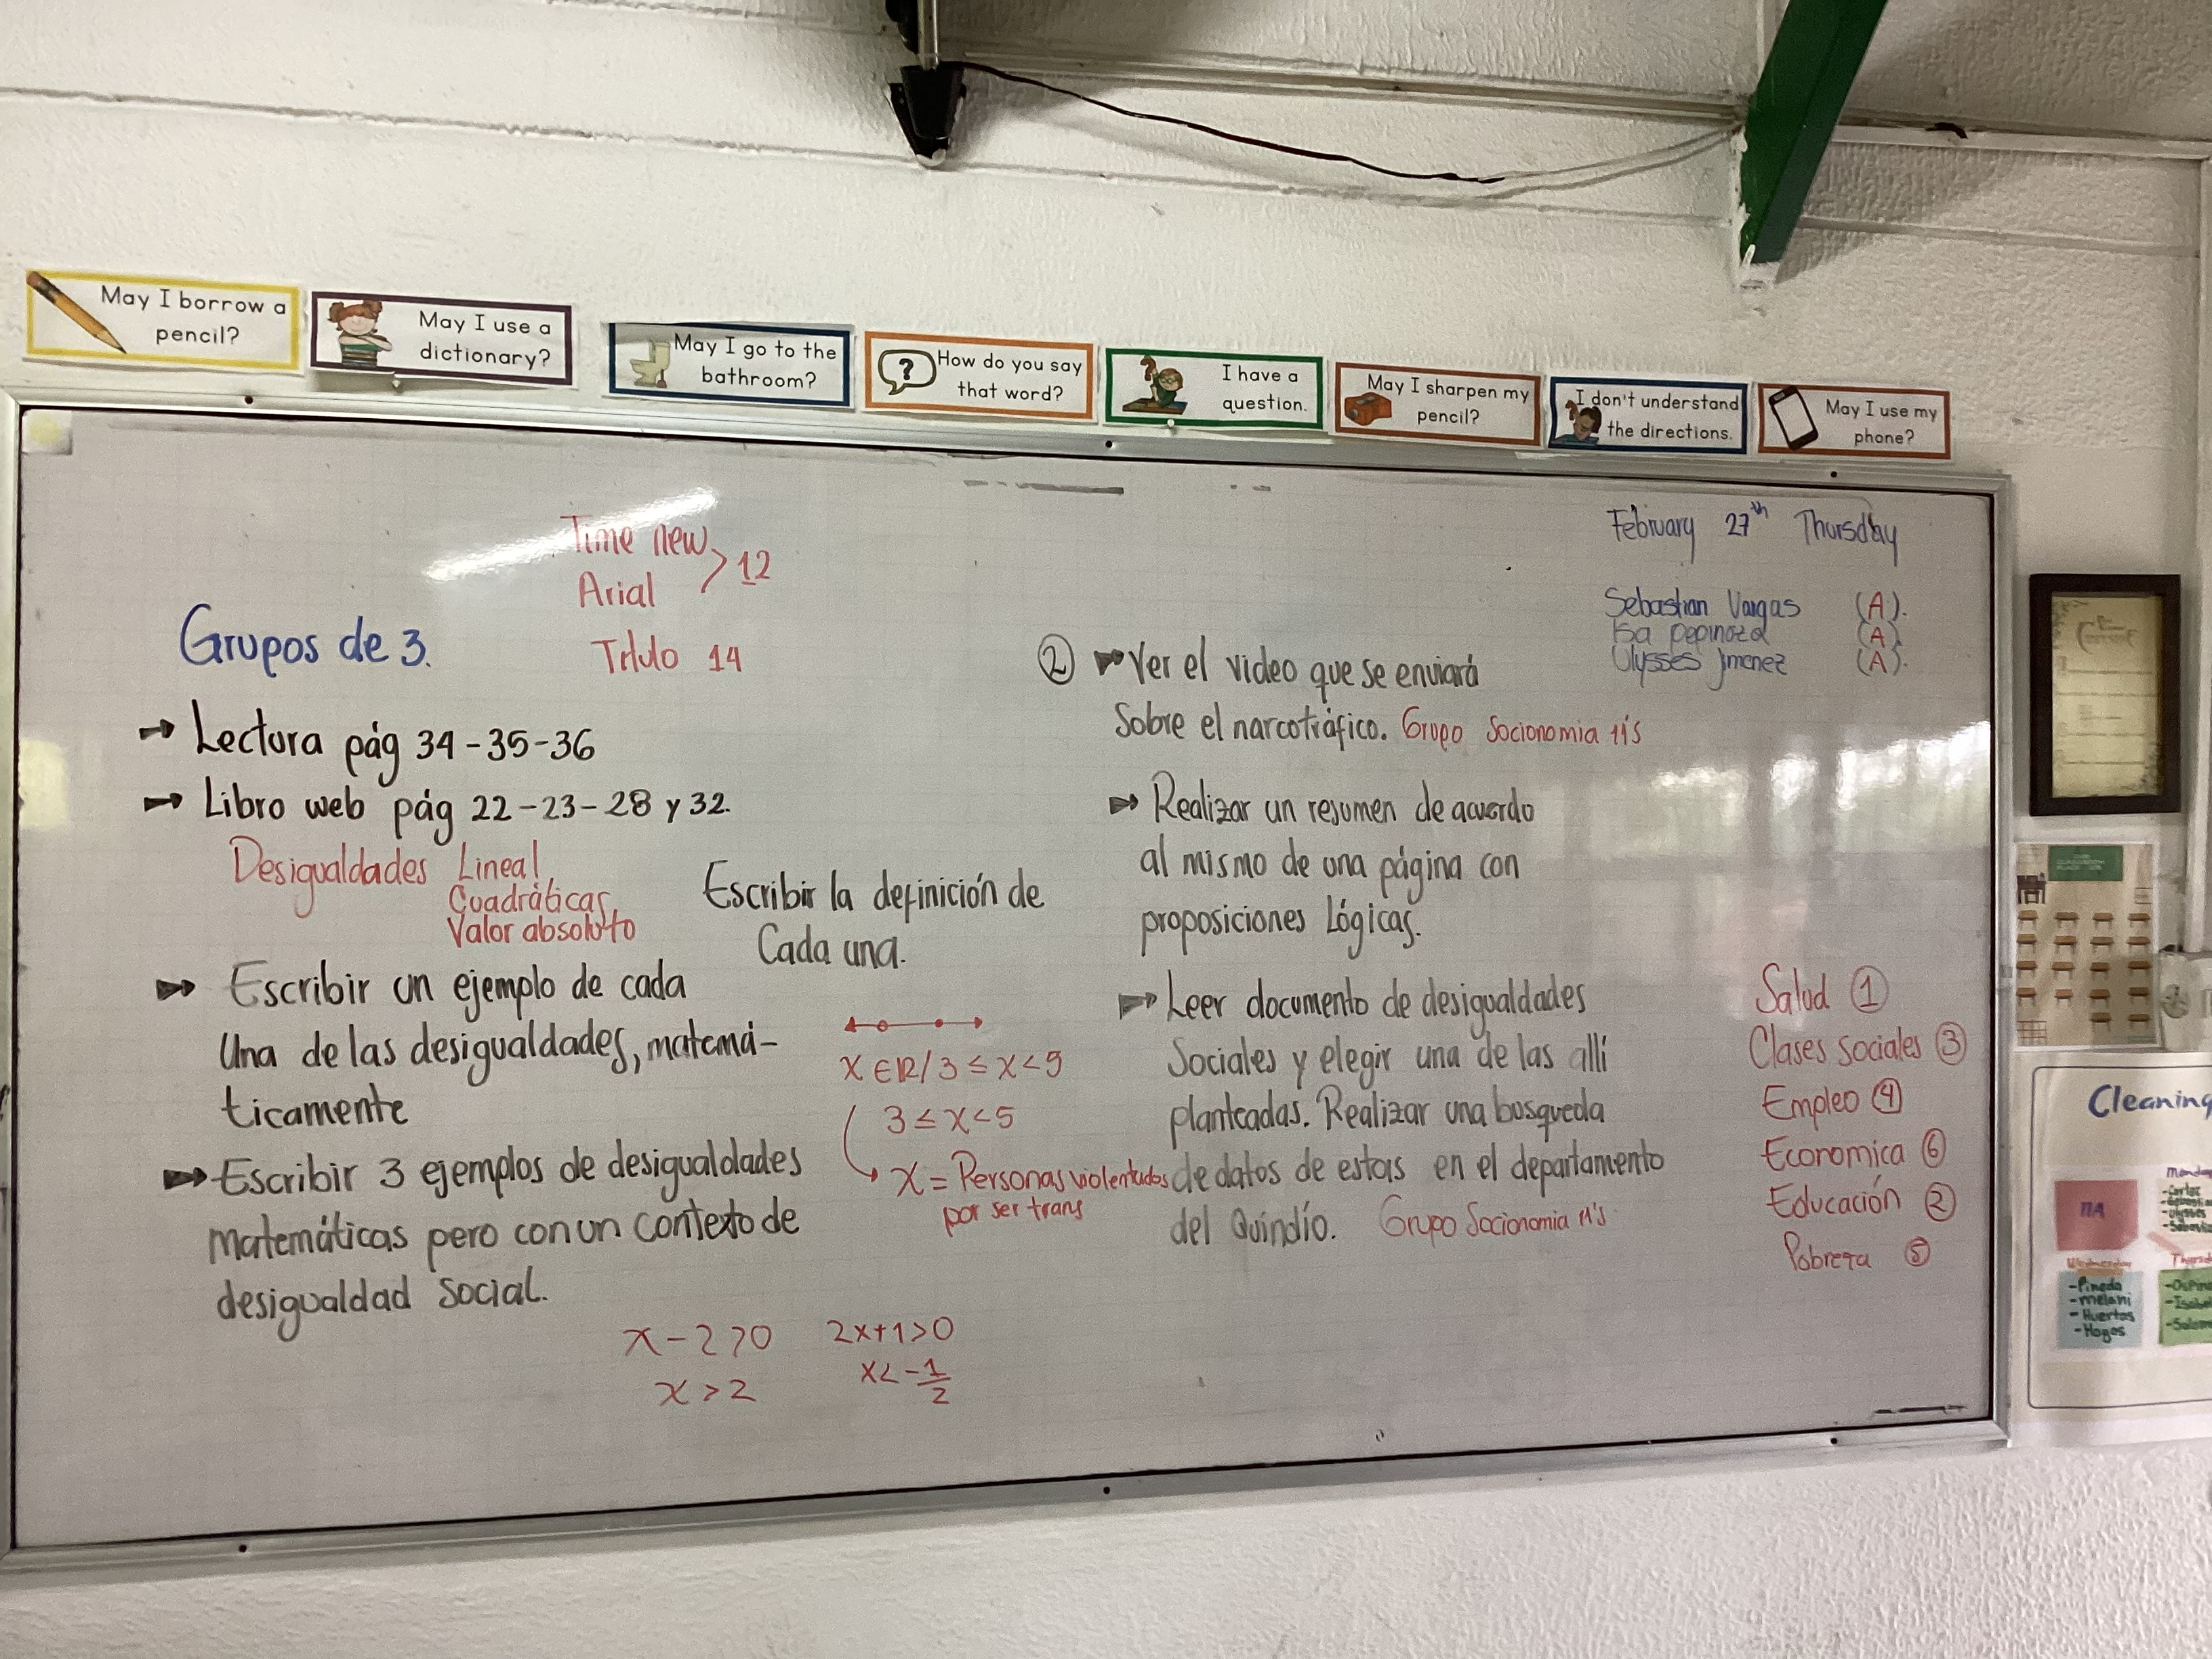 May I borrow a
pencil?
May I use a
dictionary?
May I go to the
bathroom?
?
How do you say
that word?
I have a
question.
May I sharpen my
pencil?
I don't understand
the directions.
May I use my
phone?
Time new
Arial > 12
Título 14
Grupos de 3.
→ Lectura pág 34-35-36
→ Libro web pág 22-23-28 y 32.
Desigualdades Lineal
Cuadráticas
Valor absoluto
Escribir la definición de
Cada una.
→ Escribir un ejemplo de cada
Una de las desigualdades, matemá-
ticamente
x ∈ R/3 ≤ x < 9
3 ≤ x < 5
x = Personas violentadas
por ser trans
→ Escribir 3 ejemplos de desigualdades
matemáticas pero con un contexto de
desigualdad social.
x - 2 > 0
x > 2
2x+1>0
x < -1/2
February 27th Thursday
Sebastian Vargas (A).
Isa pepinoza (A).
Ulysses Jimenez (A).
② → Ver el video que se enviará
Sobre el narcotráfico. Grupo Socionomia 11's
→ Realizar un resumen de acuerdo
al mismo de una página con
proposiciones Lógicas.
→ Leer documento de desigualdades
Sociales y elegir una de las allí
planteadas. Realizar una busqueda
de datos de estas en el departamento
del Quindío. Grupo Socionomia 11's
Salud ①
Clases sociales ③
Empleo ④
Economica ⑥
Educación ②
Pobreza ⑤
Cleaning
11A
Wednesday
-Pineda
-melani
-Huertas
-Hoyos